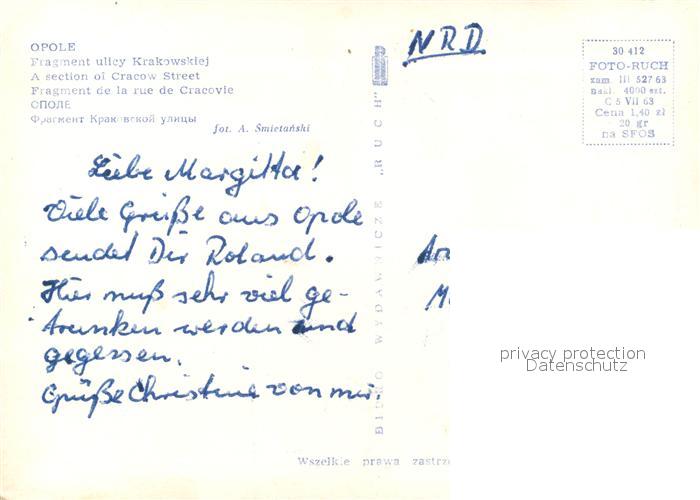 OPOLE
Fragment ulicy Krakowskiej
A section of Cracow Street
Fragment de la rue de Cracovie
ОПОЛЕ
Фрагмент Краковской улицы
fot. A. Śmietański
NRD
30 412
FOTO-RUCH
zam. III 527 63
nakł. 4000 szt.
C 5 VII 63
Cena 1,40 zł
20 gr
na SFOS
Liebe Margitta!
Viele Grüße aus Opole
sendet Dir Roland.
Hier muß sehr viel ge-
trunken werden und
gegessen.
Grüße Christine von mir.
BIURO WYDAWNICZE „RUCH"
Wszelkie prawa zastrz
privacy protection
Datenschutz